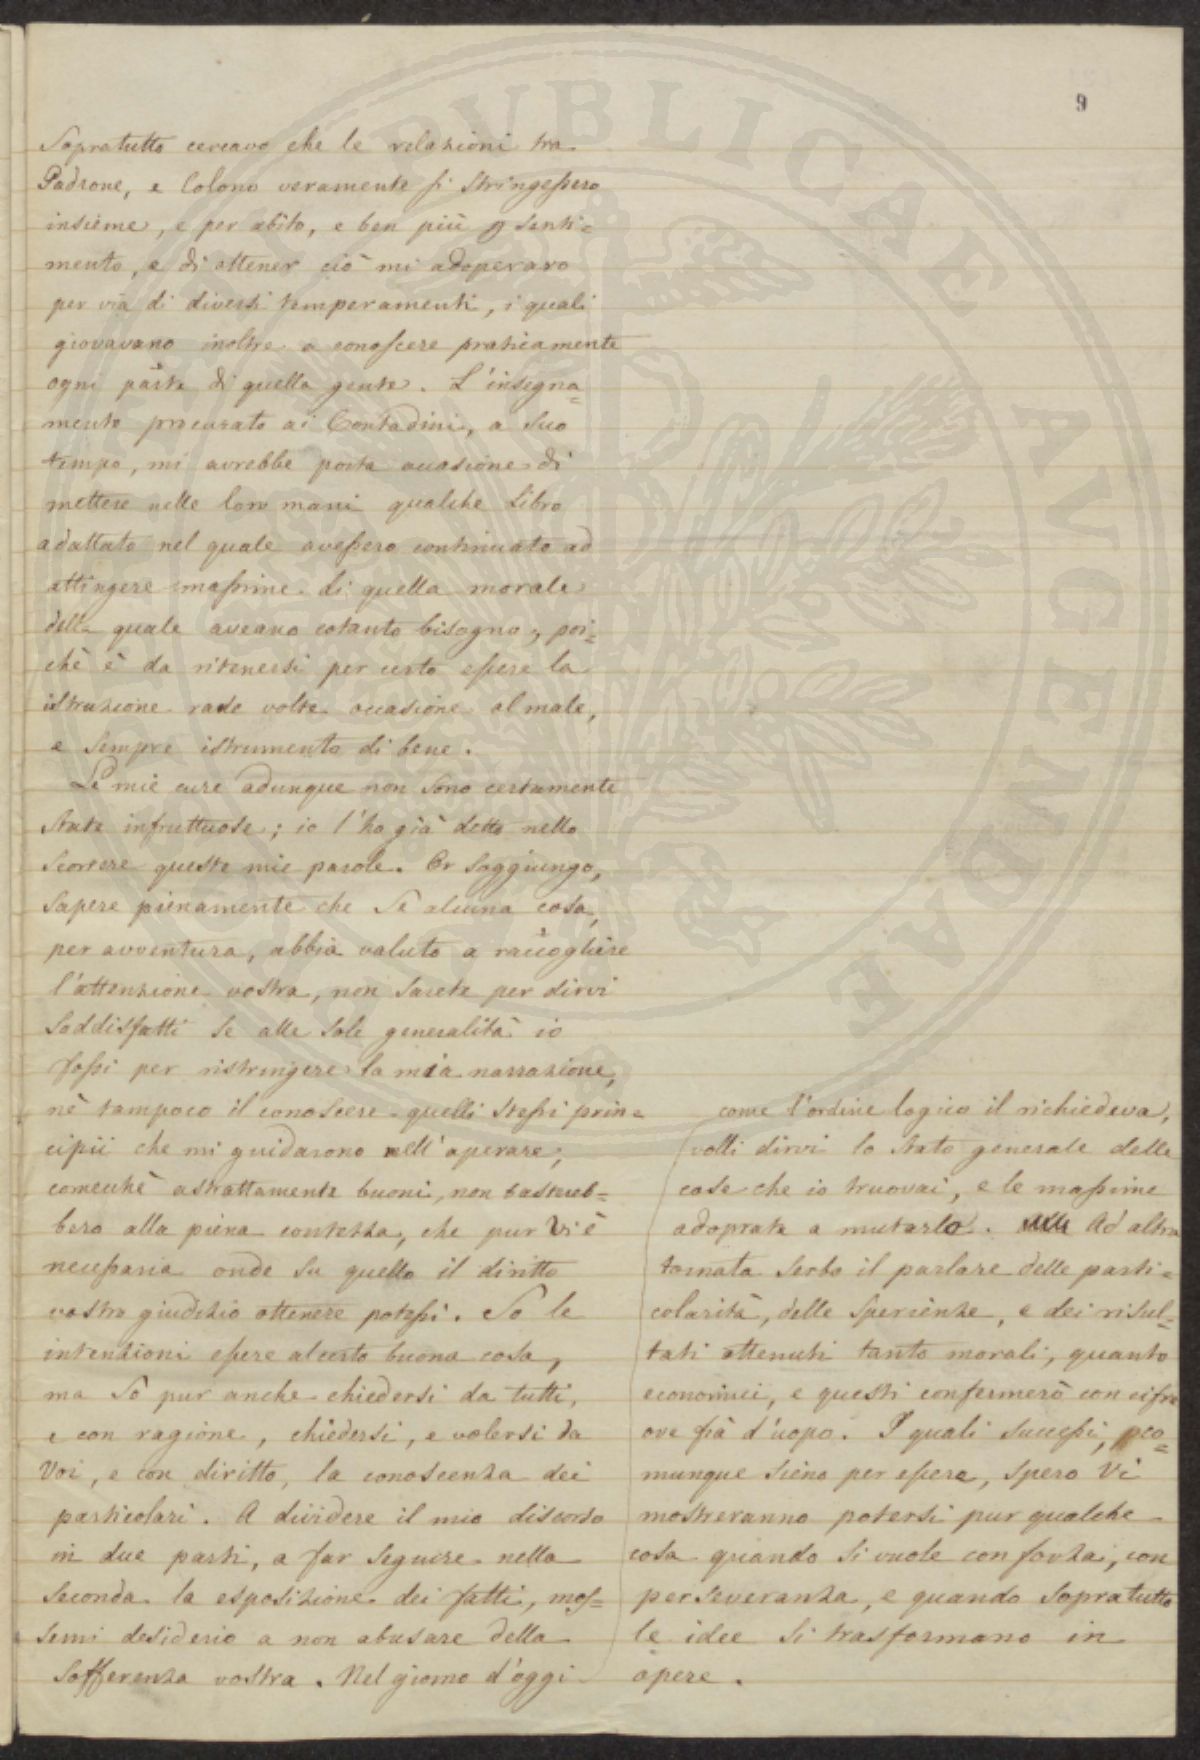 9
Sopratutto cercavo che le relazioni tra
Padrone, e Colono veramente si stringessero
insieme, e per abito, e ben più p senti=
mento, e di ottener ciò mi adoperavo
per via di diversi temperamenti, i quali
giovavano inoltre a conoscere praticamente
ogni parte di quella gente. L'insegna=
mento procurato ai Contadini, a suo
tempo, mi avrebbe porta occasione di
mettere nelle loro mani qualche Libro
adattato nel quale avessero continuato ad
attingere massime di quella morale
della quale aveano cotanto bisogno, poi=
chè è da ritenersi per certo essere la
istruzione rade volte occasione al male,
e sempre istrumento di bene.
Le mie cure adunque non sono certamente
state infruttuose; io l'ho già detto nello
scorrere queste mie parole. Or soggiungo,
sapere pienamente che se alcuna cosa,
per avventura, abbia valuto a raccogliere
l'attenzione vostra, non sarete per dirvi
soddisfatti se alle sole generalità io
fossi per ristringere la mia narrazione,
nè tampoco il conoscere quelli stessi prin=
cipii che mi guidarono nell'operare,
comecchè astrattamente buoni, non bastereb=
bero alla piena contezza, che pur vi è
necessaria onde su quello il diritto
vostro giudizio ottenere potessi. So le
intenzioni essere alcerto buona cosa,
ma so pur anche chiedersi da tutti,
e con ragione, chiedersi, e volersi da
Voi, e con diritto, la conoscenza dei
particolari. A dividere il mio discorso
in due parti, a far seguire nella
seconda la esposizione dei fatti, mos=
semi desiderio a non abusare della
sofferenza vostra. Nel giorno d'oggi
come l'ordine logico il richiedeva,
volli dirvi lo stato generale delle
cose che io truovai, e le massime
adoprate a mutarlo. Ad altra
tornata serbo il parlare delle parti=
colarità, delle sperienze, e dei risul=
tati ottenuti tanto morali, quanto
economici, e questi confermerò con cifre
ove fia d'uopo. I quali successi, co=
munque sieno per essere, spero Vi
mostreranno potersi pur qualche
cosa quando si vuole con forza, con
perseveranza, e quando sopratutto
le idee si trasformano in
opere.